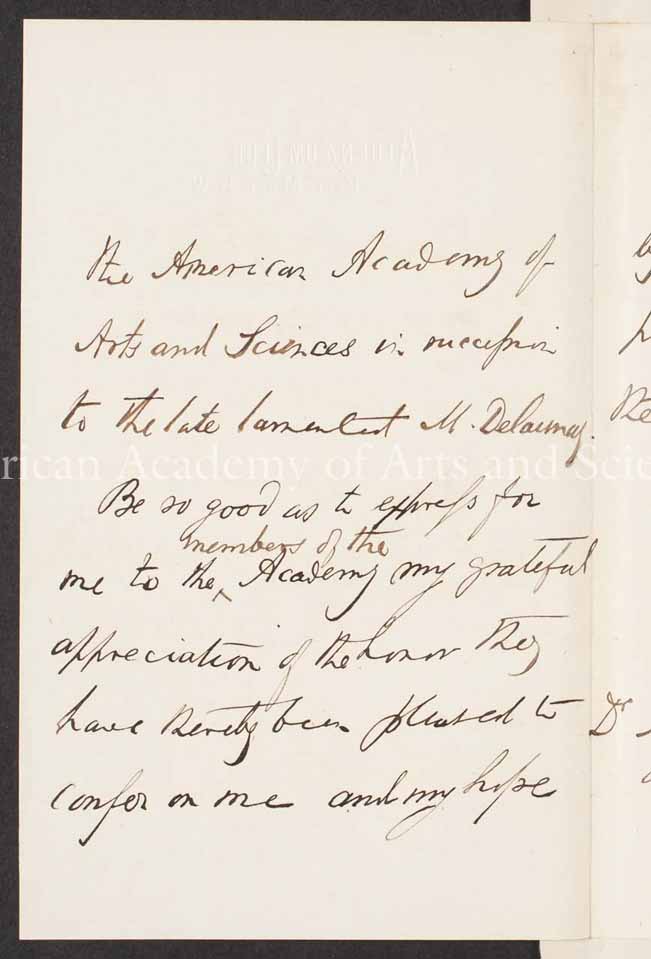 the American Academy of
Arts and Sciences in succession
to the late lamented M. Delaunay.
Be so good as to express for
members of the
me to the ^ Academy my grateful
appreciation of the honor they
have thereby been pleased to
confer on me and my hope
rican Academy of Arts and Scie
Dr